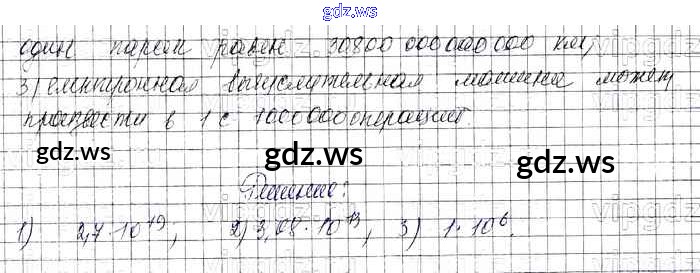 gdz.ws
один парсек равен 30800 000 000 000 км;
3) електронная вычислительная машина может
произвести в 1 с 1000000 операций.
gdz.ws gdz.ws gdz.ws
Решение:
1) 2,7 · 10¹⁹; 2) 3,08 · 10¹³; 3) 1 · 10⁶.
gdz.ws gdz.ws